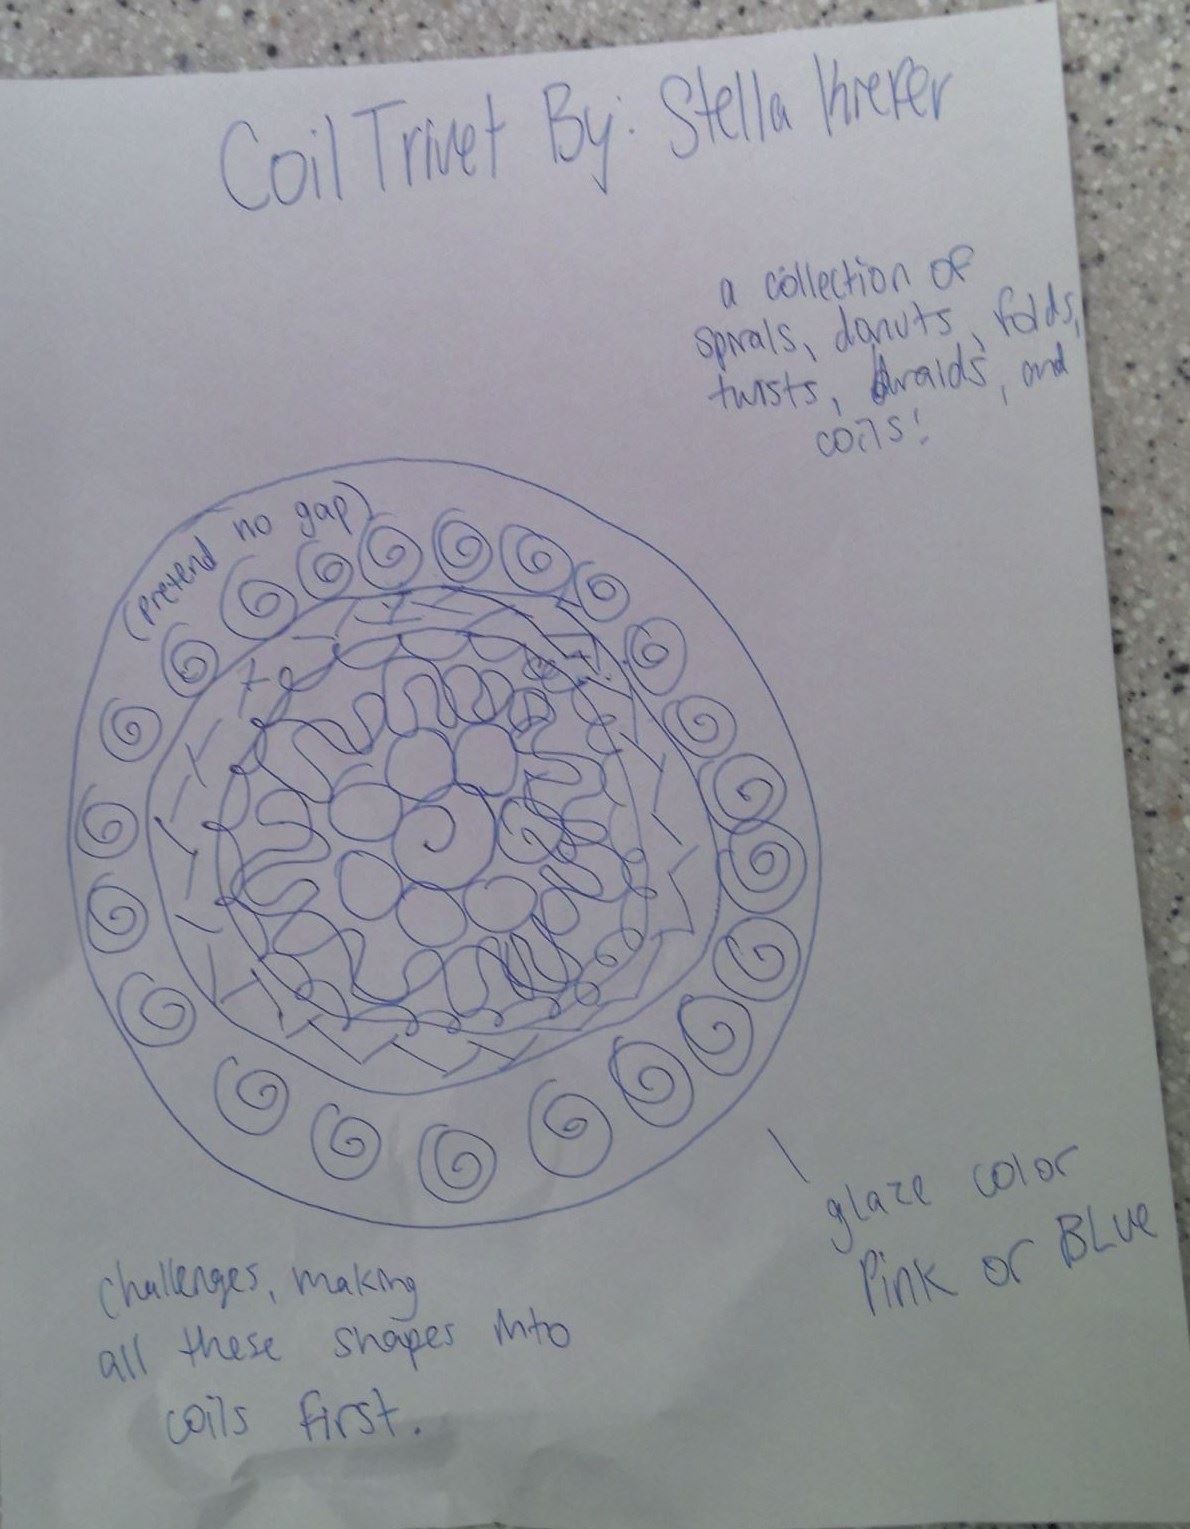 Coil Trivet By: Stella
a collection of
spirals, donuts, folds,
twists, braids, and
coils!
(Pretend no gap)
glaze color
Pink or BLue
challenges, making
all these shapes into
coils first.